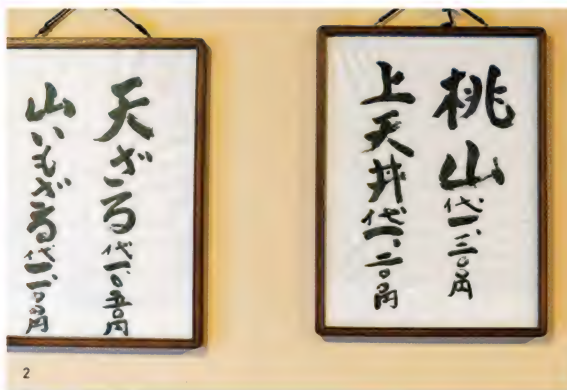 桃山代一、三〇〇円
上天丼代一、二〇〇円
天ざる代一、〇五〇円
山いもざる代一、一〇〇円
2